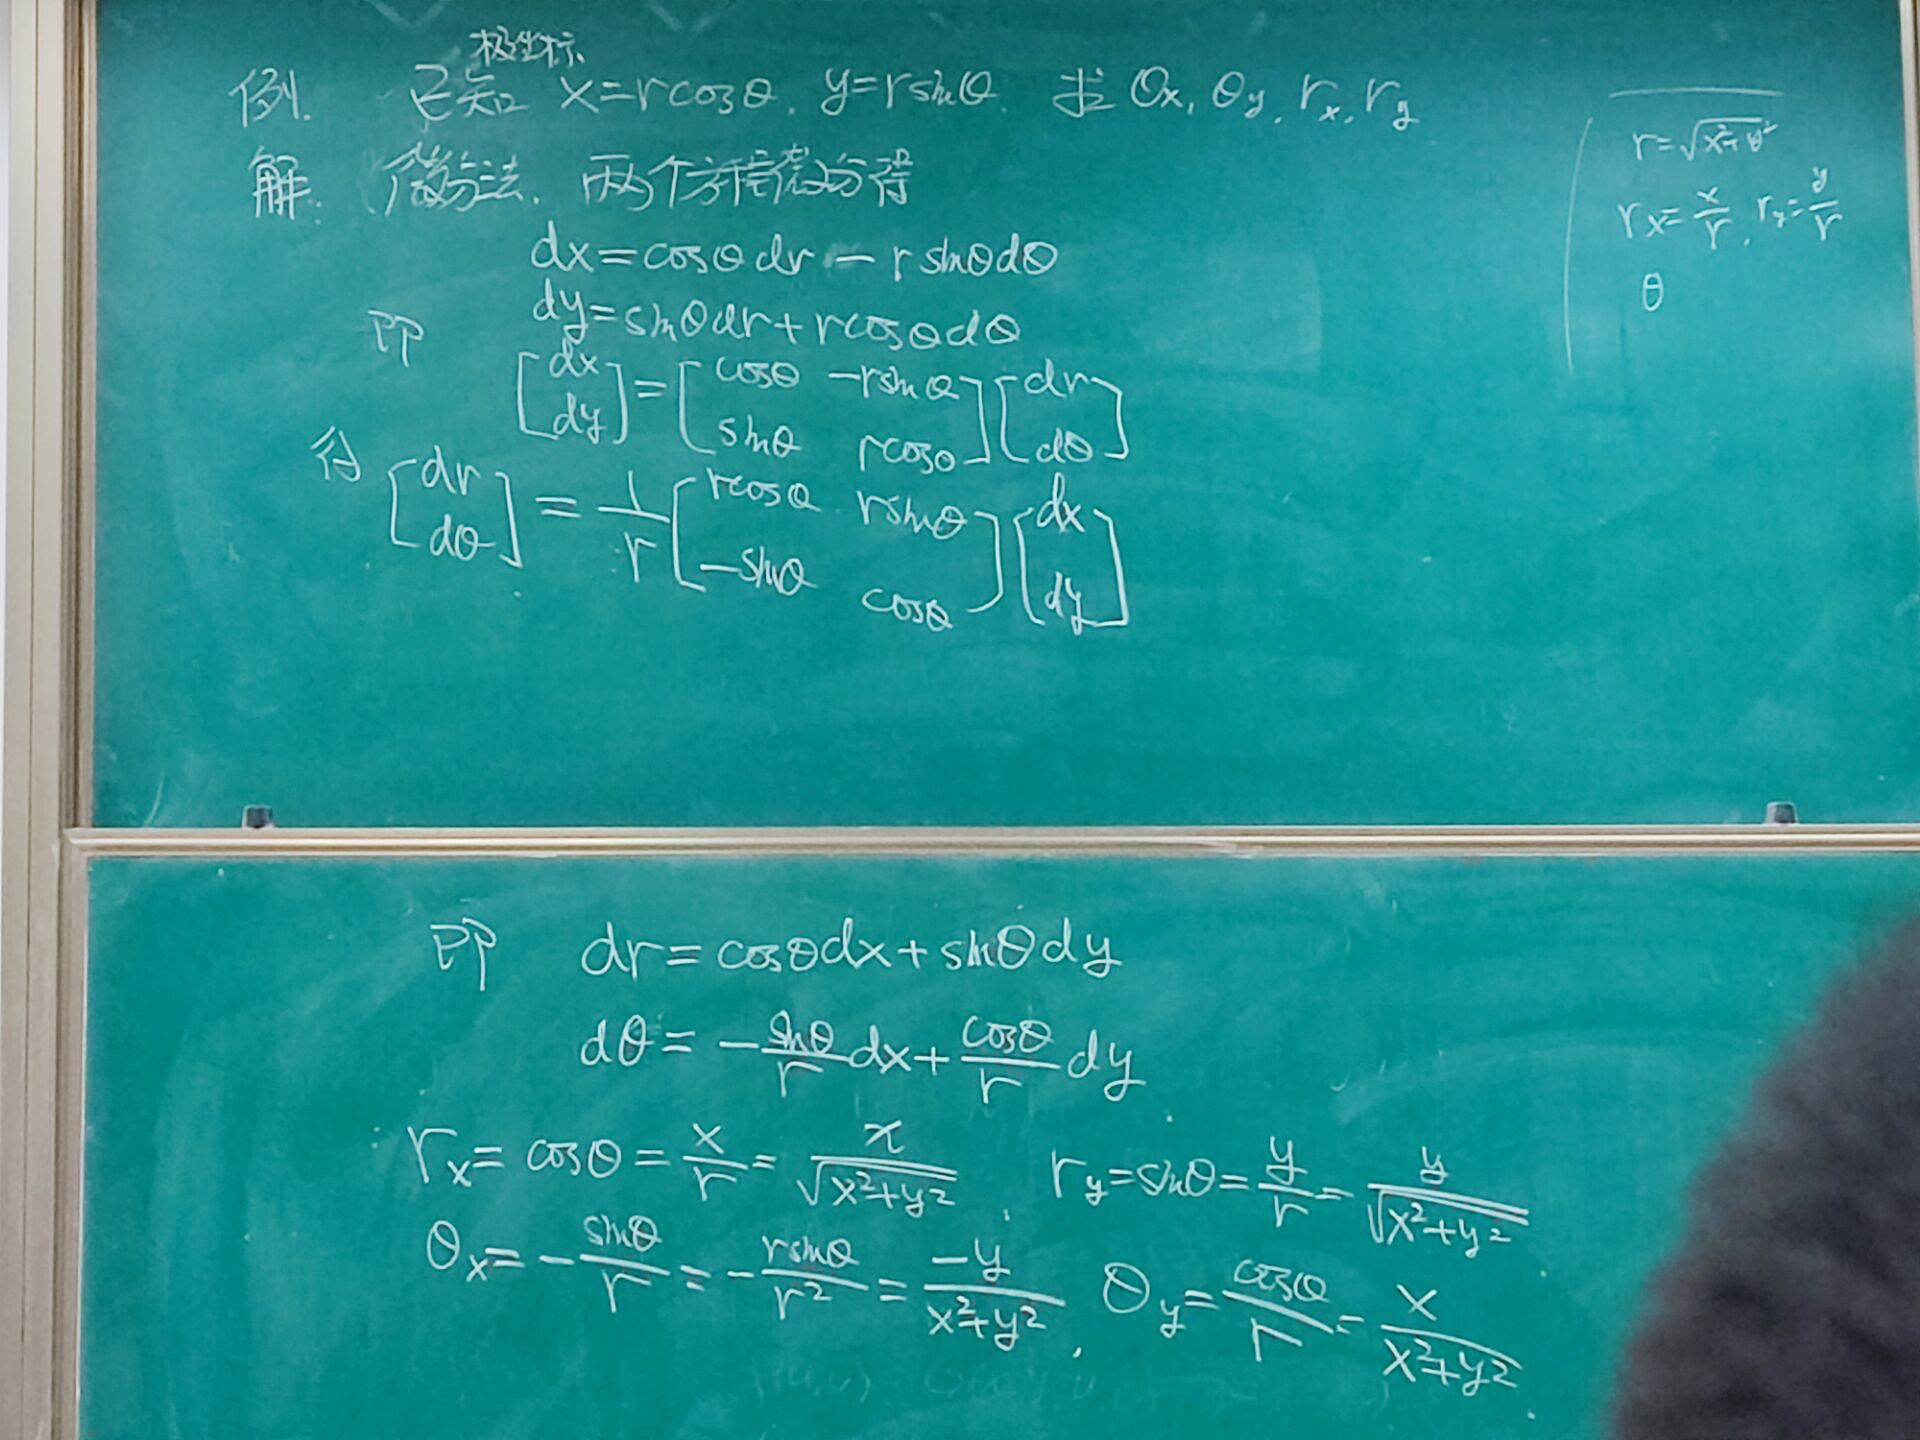 极坐标
例. 已知 x=rcosθ, y=rsinθ. 求 θx, θy, rx, ry
解: 微分法. 两个方程微分得
dx=cosθdr-rsinθdθ
dy=sinθdr+rcosθdθ
即 [dx; dy]=[cosθ -rsinθ; sinθ rcosθ][dr; dθ]
得 [dr; dθ]=1/r[rcosθ rsinθ; -sinθ cosθ][dx; dy]
r=√(x²+y²)
rx=x/r, ry=y/r
θ
即 dr=cosθdx+sinθdy
dθ=-sinθ/r dx+cosθ/r dy
rx=cosθ=x/r=x/√(x²+y²) ry=sinθ=y/r=y/√(x²+y²)
θx=-sinθ/r=-rsinθ/r²=-y/(x²+y²), θy=cosθ/r=x/(x²+y²)